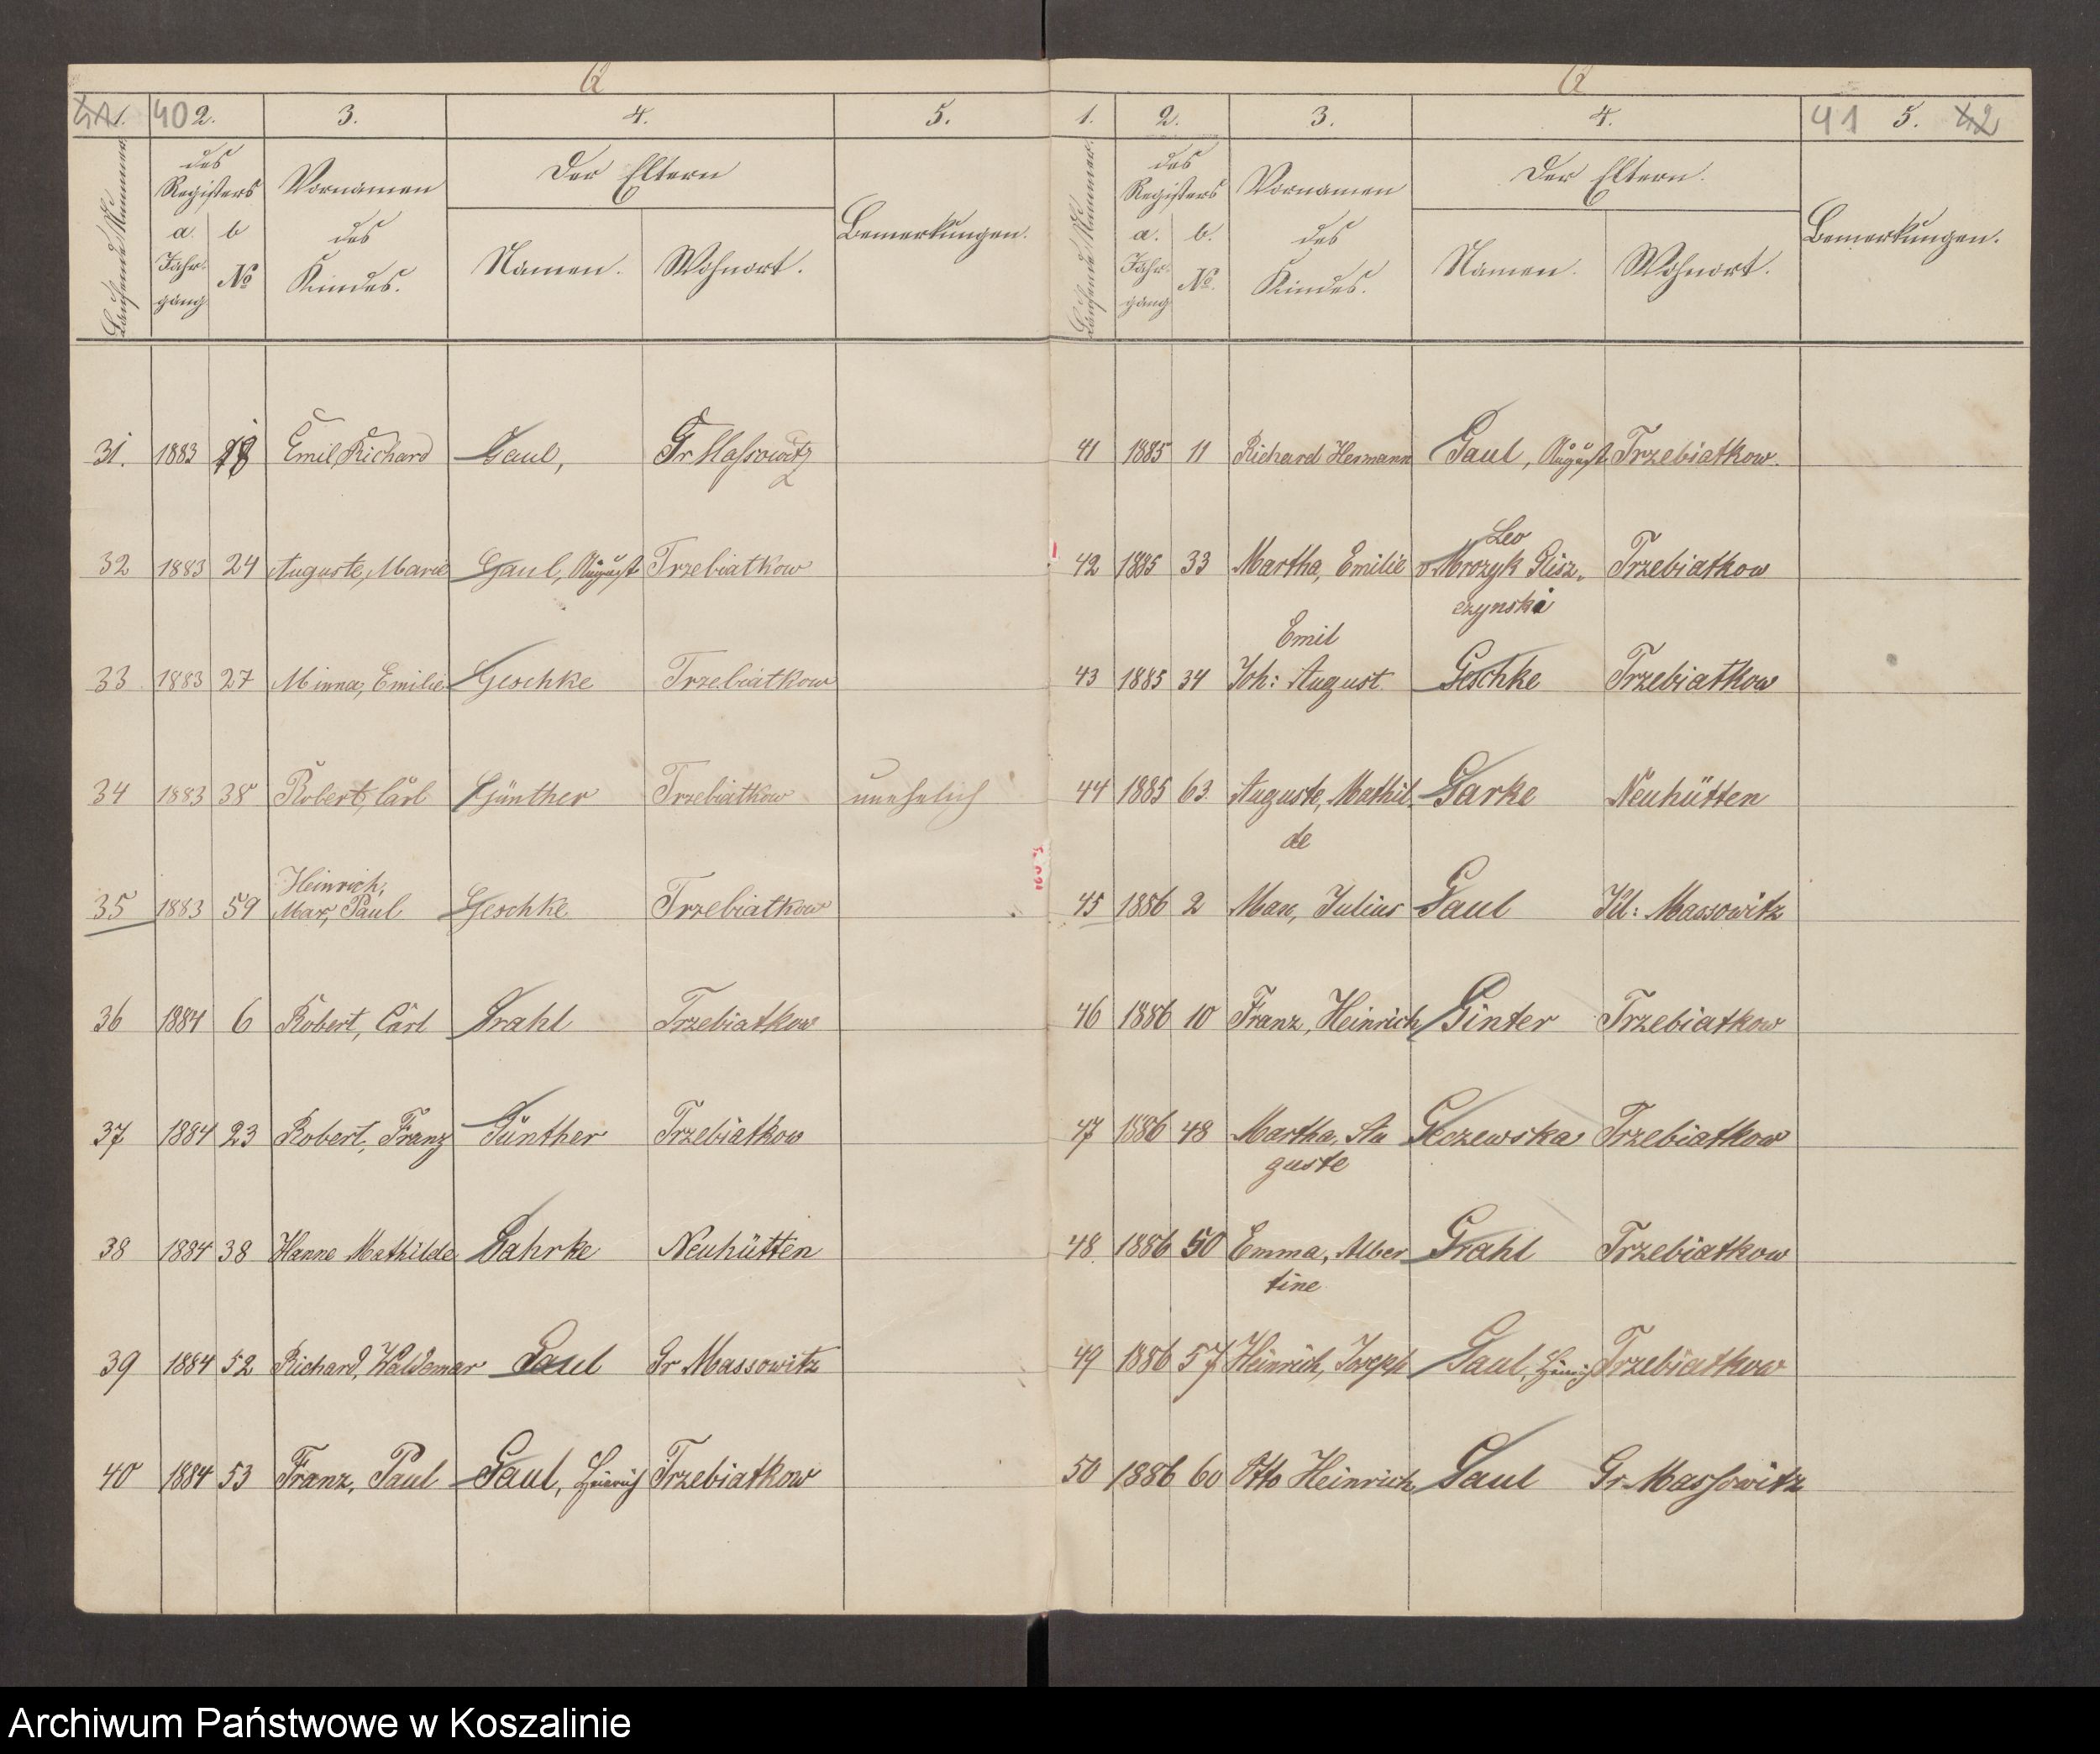 G
1. 40 2. 3. 4. 5.
Laufende Nummer.
des
Registers
a. b
Jahr-
gang. No
Vornamen
des
Kindes.
Der Eltern
Namen. Wohnort.
Bemerkungen.
31. 1883 18 Emil, Richard Gaul, Gr Massowitz
32 1883 24 Auguste, Marie Gaul, August Trzebiatkow
33 1883 27 Minna, Emilie Geschke Trzebiatkow
34 1883 38 Robert, Carl Günther Trzebiatkow unehelich
Heinrich,
35 1883 59 Max, Paul Geschke Trzebiatkow
36 1884 6 Robert, Carl Grahl Trzebiatkow
37 1884 23 Robert, Franz Günther Trzebiatkow
38 1884 38 Hanne Mathilde Gahrke Neuhütten
39 1884 52 Richard, Waldemar Gaul Gr Massowitz
40 1884 53 Franz, Paul Gaul, Heinrich Trzebiatkow
G
1. 2. 3. 4. 41 5. 42
Laufende Nummer.
des
Registers
a. b.
Jahr-
gang No.
Vornamen
des
Kindes.
Der Eltern.
Namen. Wohnort.
Bemerkungen.
41 1885 11 Richard Hermann Gaul, August Trzebiatkow.
Leo
42 1885 33 Martha, Emilie v. Mrozyk Glisz-
czynski Trzebiatkow
Emil
43 1885 34 Joh: August Geschke Trzebiatkow
44 1885 63. Auguste, Mathil Garke Neuhütten
de
45 1886 2 Max, Julius Gaul Kl: Massowitz
46 1886 10 Franz, Heinrich Ginter Trzebiatkow
47 1886 48 Martha, Au Gleczewska Trzebiatkow
guste
48. 1886 50 Emma, Alber Grahl Trzebiatkow
tine
49 1886 57 Heinrich, Joseph Gaul, Heinrich Trzebiatkow
50 1886 60 Otto Heinrich Gaul Gr. Massowitz
Archiwum Państwowe w Koszalinie